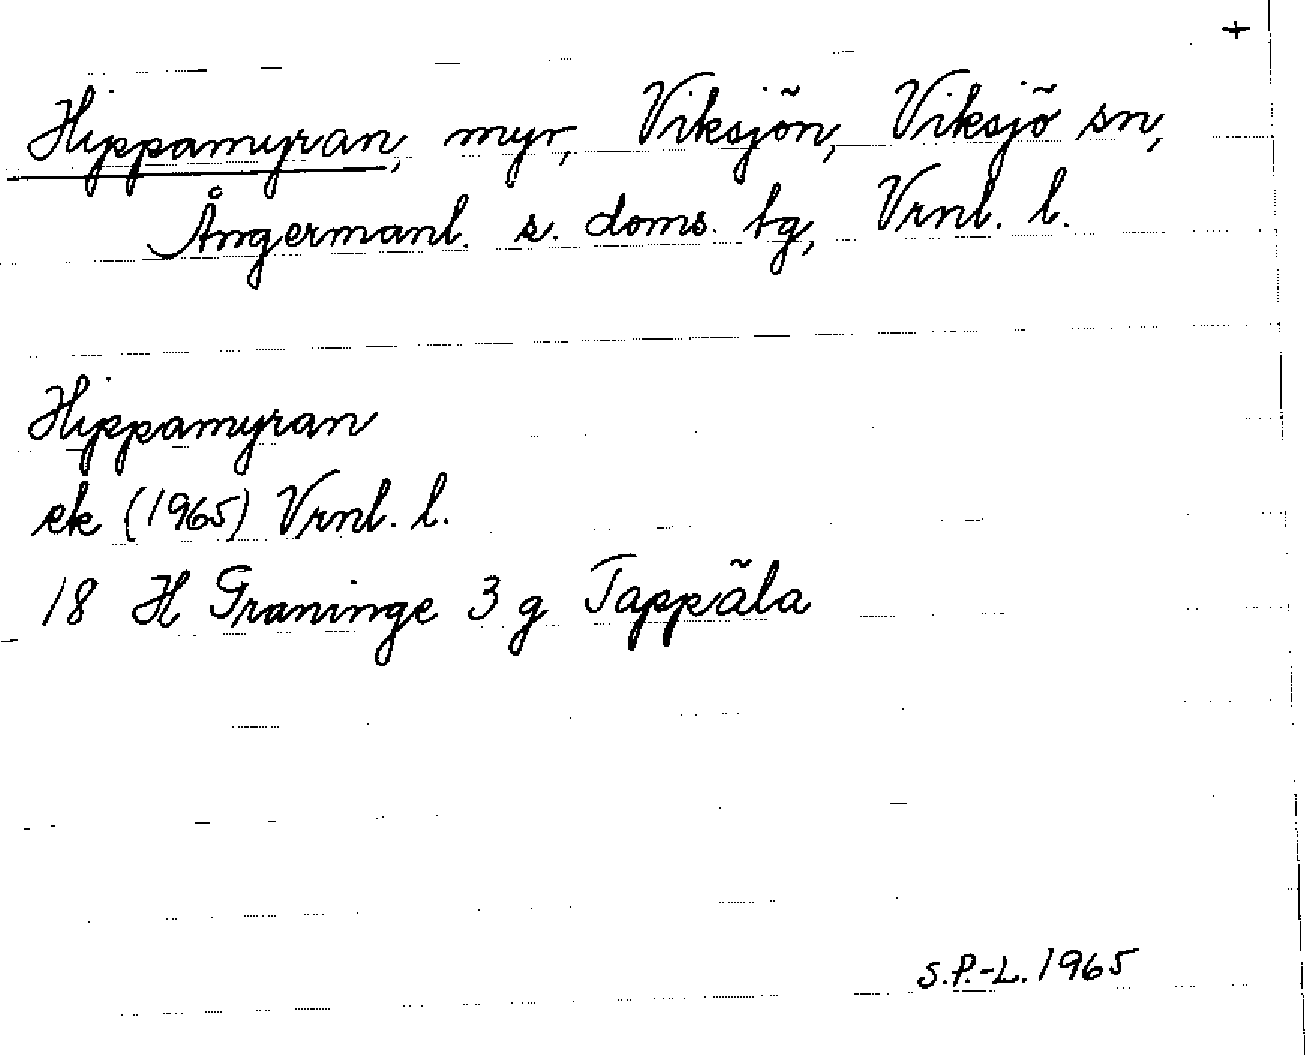 +
Hippamyran, myr, Viksjön, Viksjö sn,
Ångermanl. s. doms. tg, Vrnl. l.
Hippamyran
ek (1965) Vrnl. l.
18 H Graninge 3 g Tappäla
S.P.-L. 1965